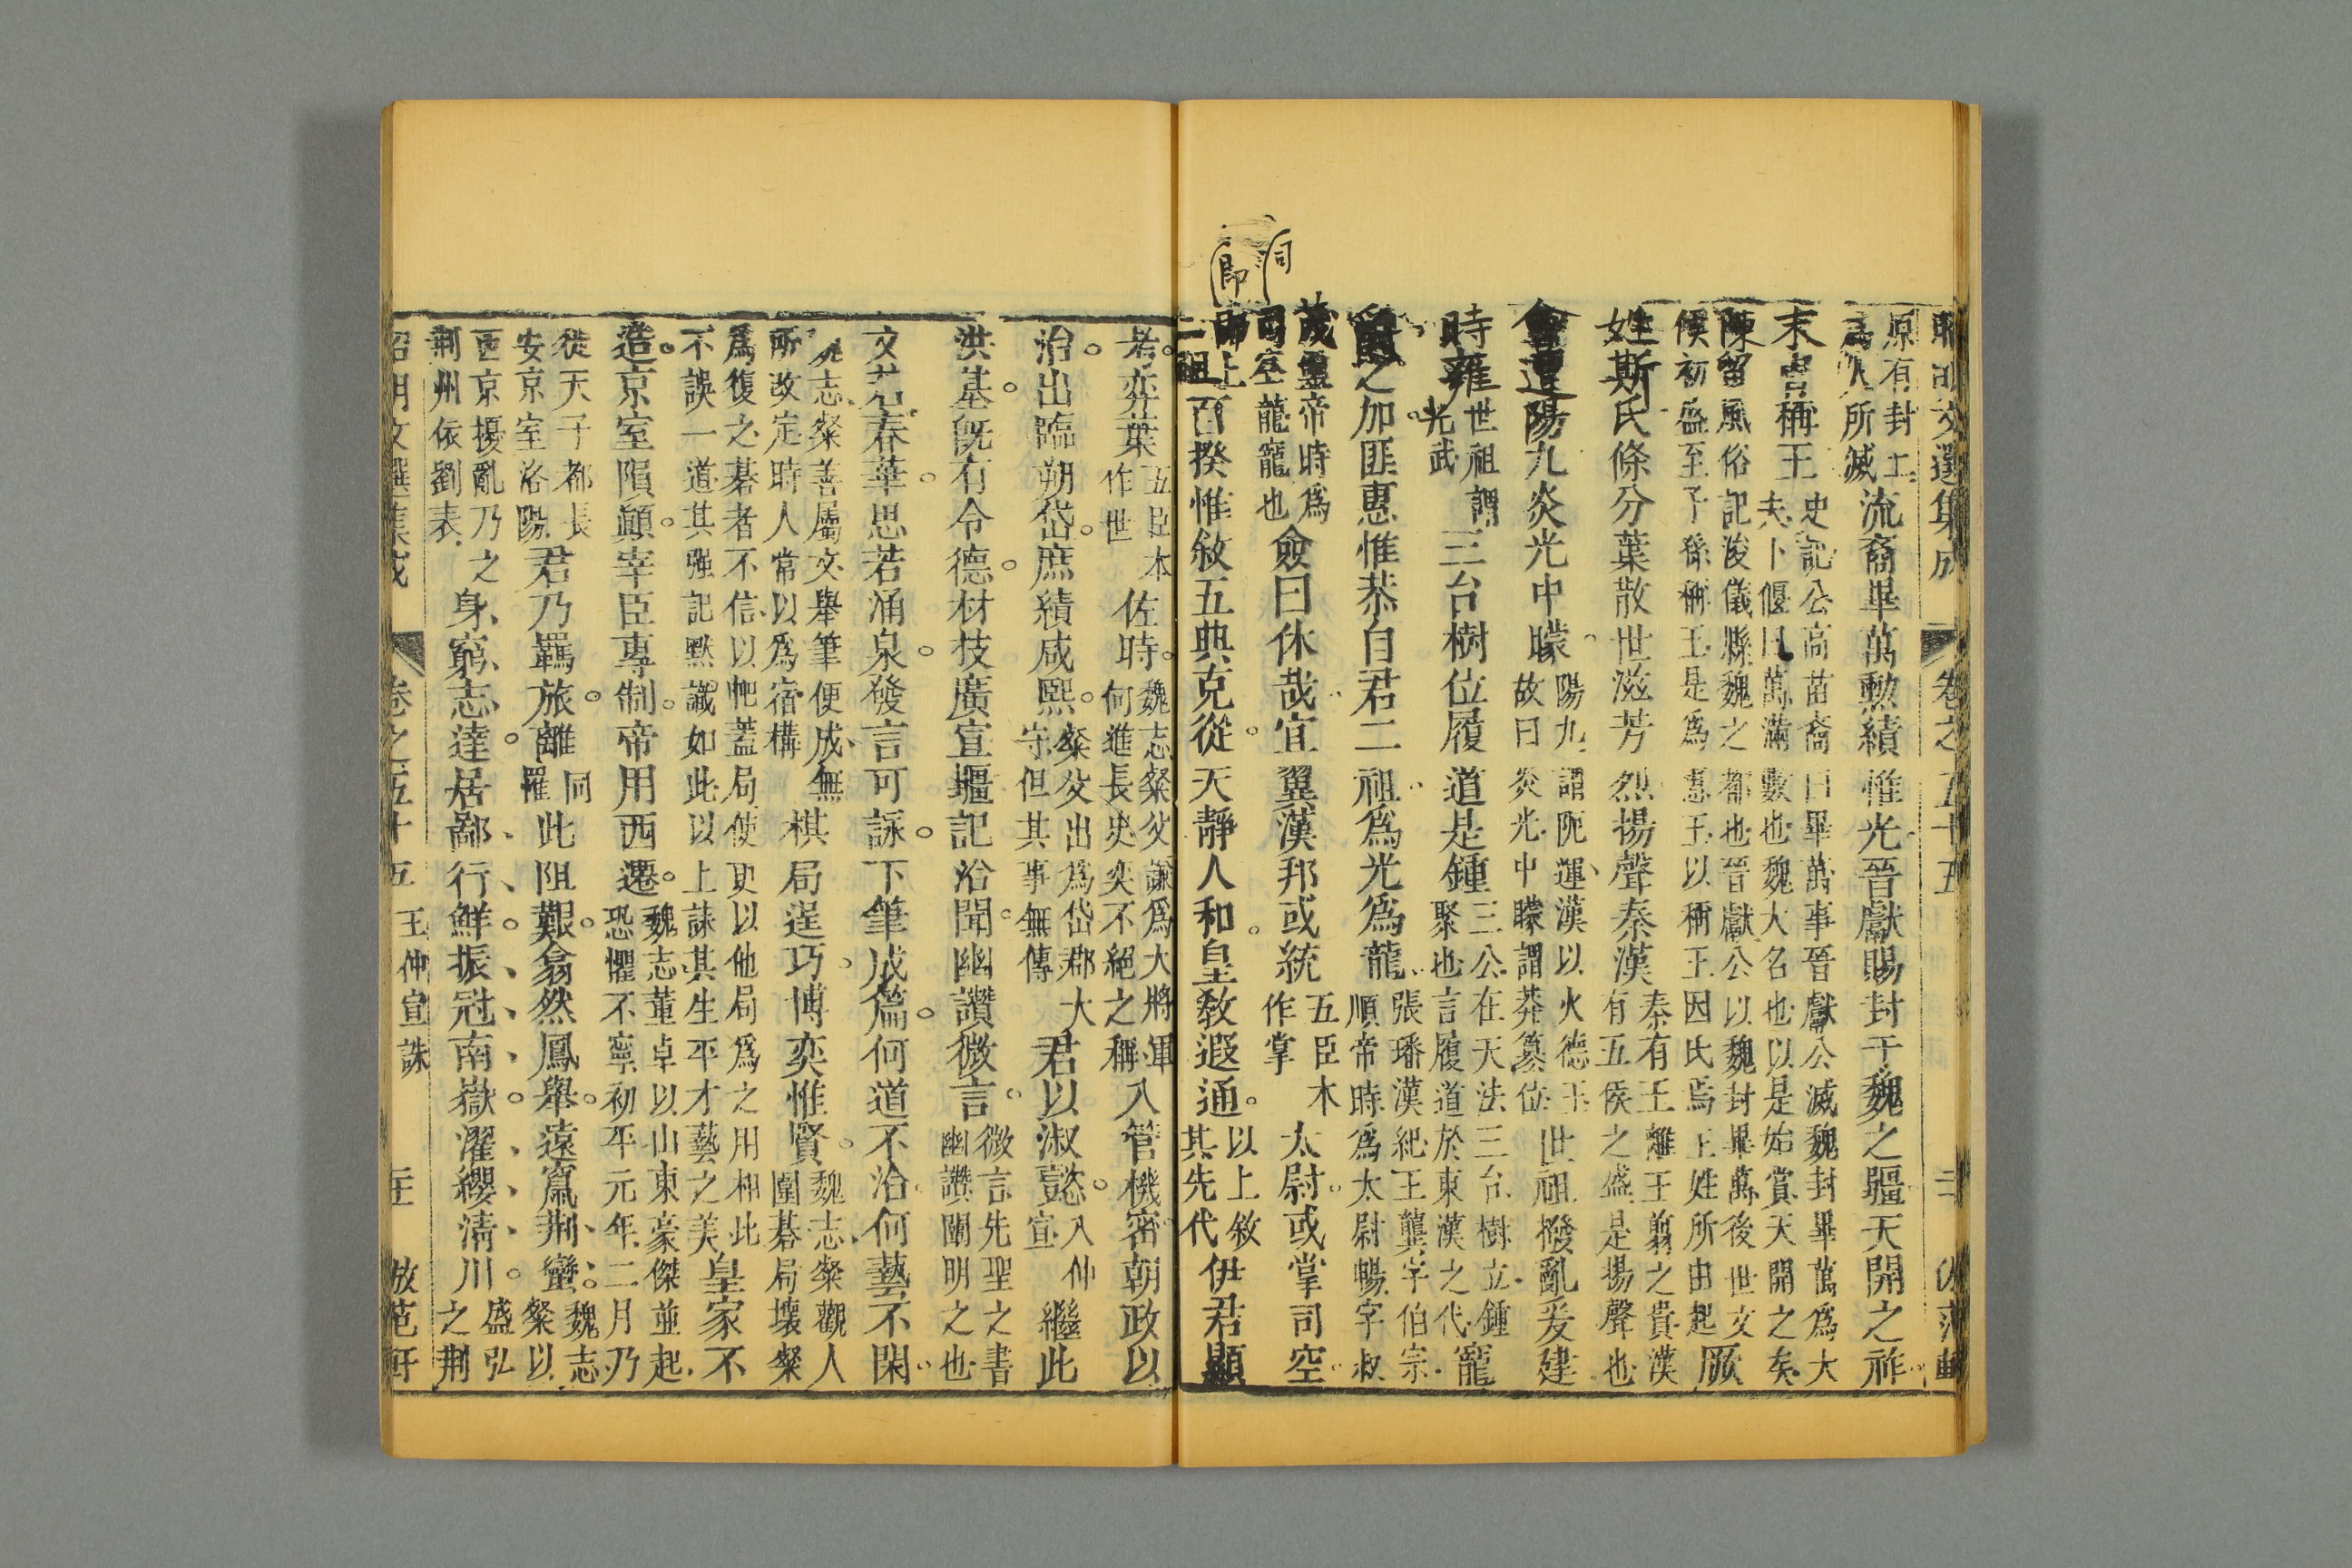 同
即
原有封
爲人所滅
流裔畢萬勲績惟光晉獻賜封于魏之疆天開之祚
末冑稱王
史記公高苗裔曰畢萬事晉獻公滅魏封畢萬爲大
夫卜偃曰萬滿數也魏大名也以是始賞天開之矣
陳留風俗記浚儀縣魏之都也晉獻公以魏封畢萬後世文
侯初盛至子孫稱王是爲惠王以稱王因氏焉王姓所由起
厥
姓斯氏條分葉散世滋芳烈揚聲秦漢
秦有王離王翦之貴漢
有五侯之盛是揚聲也
會遭陽九炎光中矇
陽九謂阨運漢以火德王
故曰炎光中矇謂莽簒位
世祖撥亂爰建
時雍
世祖謂
光武
三台樹位履道是鍾
三公在天法三台樹立鍾
聚也言履道於東漢之代
寵
爵之加匪惠惟恭自君二祖爲光爲龍
張璠漢紀王龔字伯宗
順帝時爲太尉暢字叔
茂靈帝時爲
司空龍寵也
僉曰休哉宜翼漢邦或統
五臣本
作掌
太尉或掌司空
百揆惟敘五典克從天靜人和皇敎遐通
以上敘
其先代
伊君顯
考弈葉
五臣本
作世
佐時
魏志粲父謙爲大將軍
何進長史奕不絕之稱
入管機密朝政以
治出臨朔岱庶績咸熙
粲父出爲岱郡大
守但其事無傳
君以淑懿
入仲
宣
繼此
洪基旣有令德材技廣宣疆記洽聞幽讚微言
微言先聖之書
幽讚闡明之也
文若春華思若涌泉發言可詠下筆成篇何道不洽何藝不閑
魏志粲善屬文舉筆便成無
所改定時人常以爲宿構
棋局逞巧博奕惟賢
魏志粲觀人
圍碁局壞粲
爲復之碁者不信以帊蓋局使更以他局爲之用相比
不誤一道其强記默識如此以上誄其生平才藝之美
皇家不
造京室隕顚宰臣專制帝用西遷
魏志董卓以山東豪傑並起
恐懼不寧初平元年二月乃
徙天子都長
安京室洛陽
君乃羈旅離
同
罹
此阻艱翕然鳳舉遠竄荆蠻
魏志
粲以
西京擾亂乃之
荆州依劉表
身窮志達居鄙行鮮振冠南嶽濯纓淸川
盛弘
之荆
卷之五十五
王仲宣誄